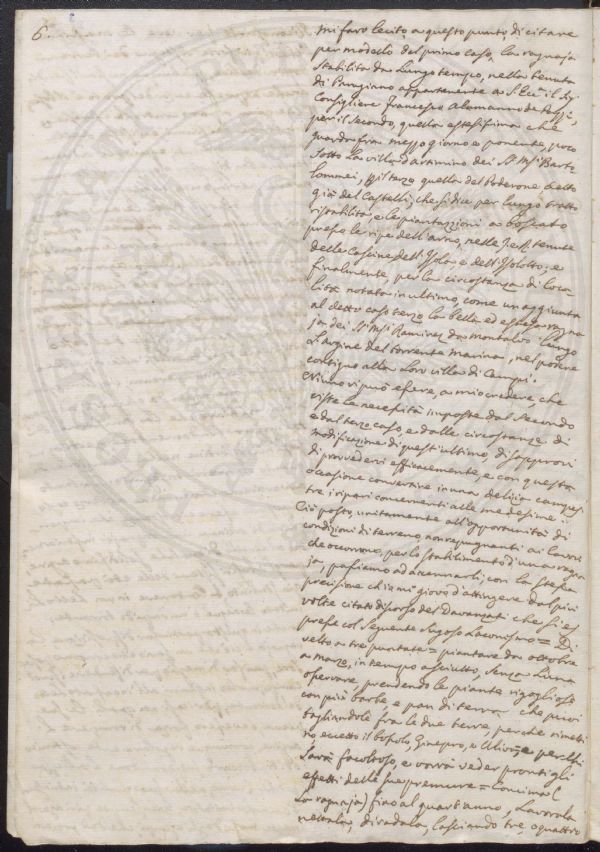 6.
mi farò lecito a questo punto di citare
per modello del primo caso, la ragnaja
stabilita da lungo tempo, nella tenuta
di Parugiano appartenente a S. Ecc. il Sig.
Consigliere Francesco Alamanno de Pazzi,
per il secondo, quella estesissima che
guarda fra mezzo giorno e ponente, poco
sotto la villa d'artimino dei SS. Msi Barto
lommei, pel terzo quella del Poderone detto
già del Castelli, che si dice per lungo tratto
ristabilita, e le piantazzioni a boscato
presso le ripe dell'arno, nelle I. e R. tenute
delle Cascine dell'Isola, e dell'Isolotto, e
finalmente, per la circostanza di loca-
lità notata in ultimo, come un'aggiunta
al detto caso terzo la bella ed estesa ragna
ja dei SS. Msi Ramirez da montalvo lungo
l'argine del torrente marina, nel podere
contiguo alla loro villa di Campi.
Niuno vi può essere, a mio credere, che
viste le necessità imposte dal secondo
e dal terzo caso, e dalle circostanze di
modificazione di quest'ultimo, disapprovi
di provvedervi efficacemente, e con questa
occasione convertire in una delizia campes
tre i ripari concernenti alle medesime.
Ciò posto, unitamente all'opportunità di
condizioni di terreno, non repugnanti ai lavori
che occorrono, per lo stabilimento d'una ragna
ja, passiamo ad accennarli; con la stessa
precisione ch'ia mi giovo d'attingere dal più
volte citato discorso del Davanzati che si es
presse col seguente sugoso laconismo = Di
velto a tre puntate = piantare da ottobre
a marzo, in tempo asciutto, senza Luna
osservare, prendendo le piante rigogliose
con più barbe e pan di terra che puoi
tagliandole fra le due terre, perchè rimetti
no eccetto il bossolo, Ginepro, e Ulivo = e per chi
sarà facoltoso, e vorrà veder pronti gli
effetti delle sue premure = Concima (
la ragnaja) fino al quart'anno, lavorala
nettala, diradala, lasciando tre, o quattro